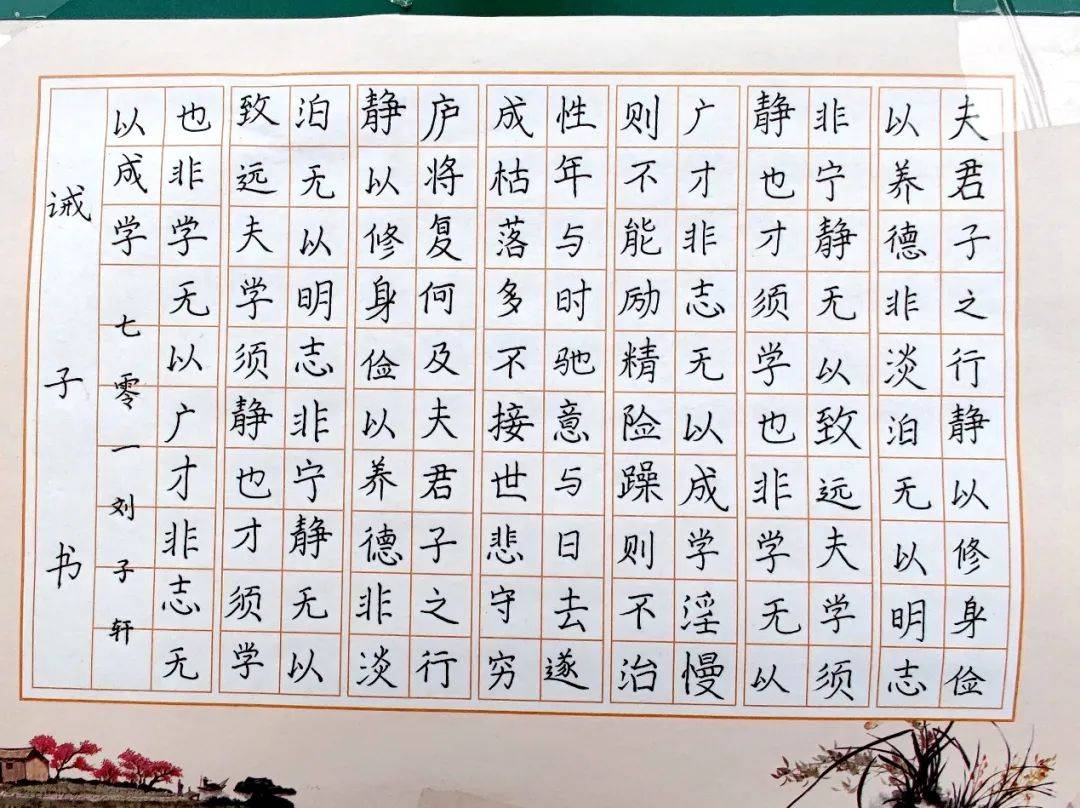 夫君子之行静以修身俭
以养德非淡泊无以明志
非宁静无以致远夫学须
静也才须学也非学无以
广才非志无以成学淫慢
则不能励精险躁则不治
性年与时驰意与日去遂
成枯落多不接世悲守穷
庐将复何及夫君子之行
静以修身俭以养德非淡
泊无以明志非宁静无以
致远夫学须静也才须学
也非学无以广才非志无
以成学 七零一刘子轩
诫子书